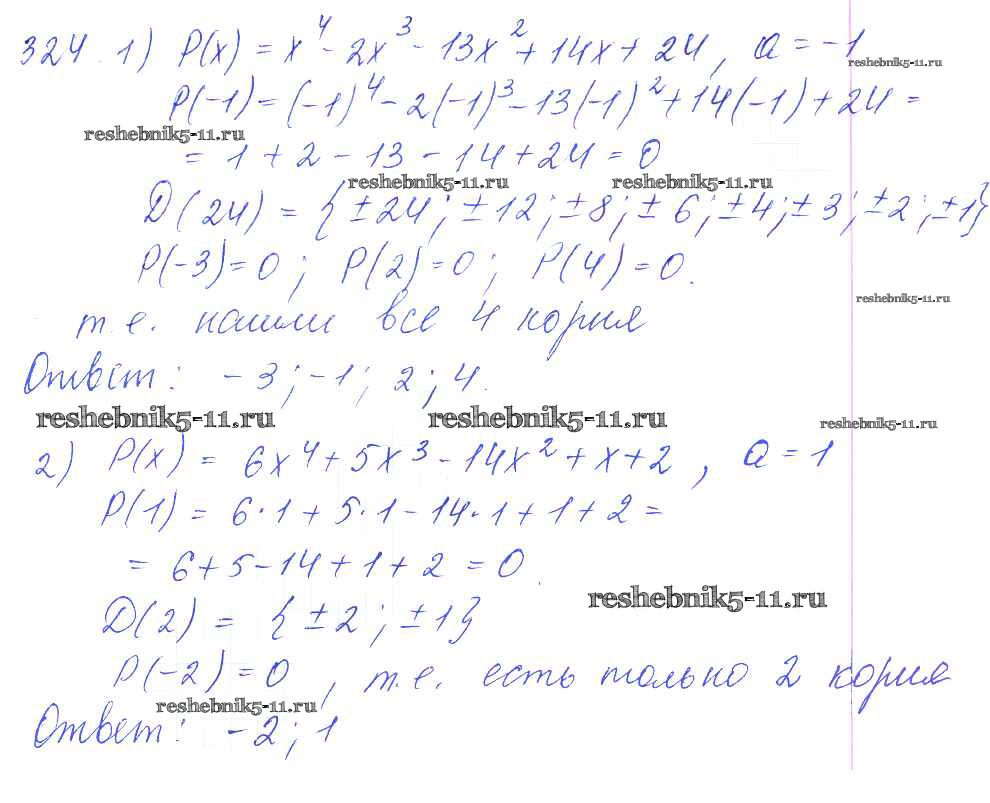 324. 1) P(x) = x⁴ - 2x³ - 13x² + 14x + 24, a = -1
reshebnik5-11.ru
P(-1) = (-1)⁴ - 2(-1)³ - 13(-1)² + 14(-1) + 24 =
reshebnik5-11.ru
= 1 + 2 - 13 - 14 + 24 = 0
reshebnik5-11.ru reshebnik5-11.ru
D(24) = {±24; ±12; ±8; ±6; ±4; ±3; ±2; ±1}
P(-3) = 0; P(2) = 0; P(4) = 0.
reshebnik5-11.ru
т.е. нашли все 4 корня
Ответ: -3; -1; 2; 4.
reshebnik5-11.ru reshebnik5-11.ru reshebnik5-11.ru
2) P(x) = 6x⁴ + 5x³ - 14x² + x + 2, a = 1
P(1) = 6·1 + 5·1 - 14·1 + 1 + 2 =
= 6 + 5 - 14 + 1 + 2 = 0.
reshebnik5-11.ru
D(2) = {±2; ±1}
P(-2) = 0, т.е. есть только 2 корня
reshebnik5-11.ru
Ответ: -2; 1